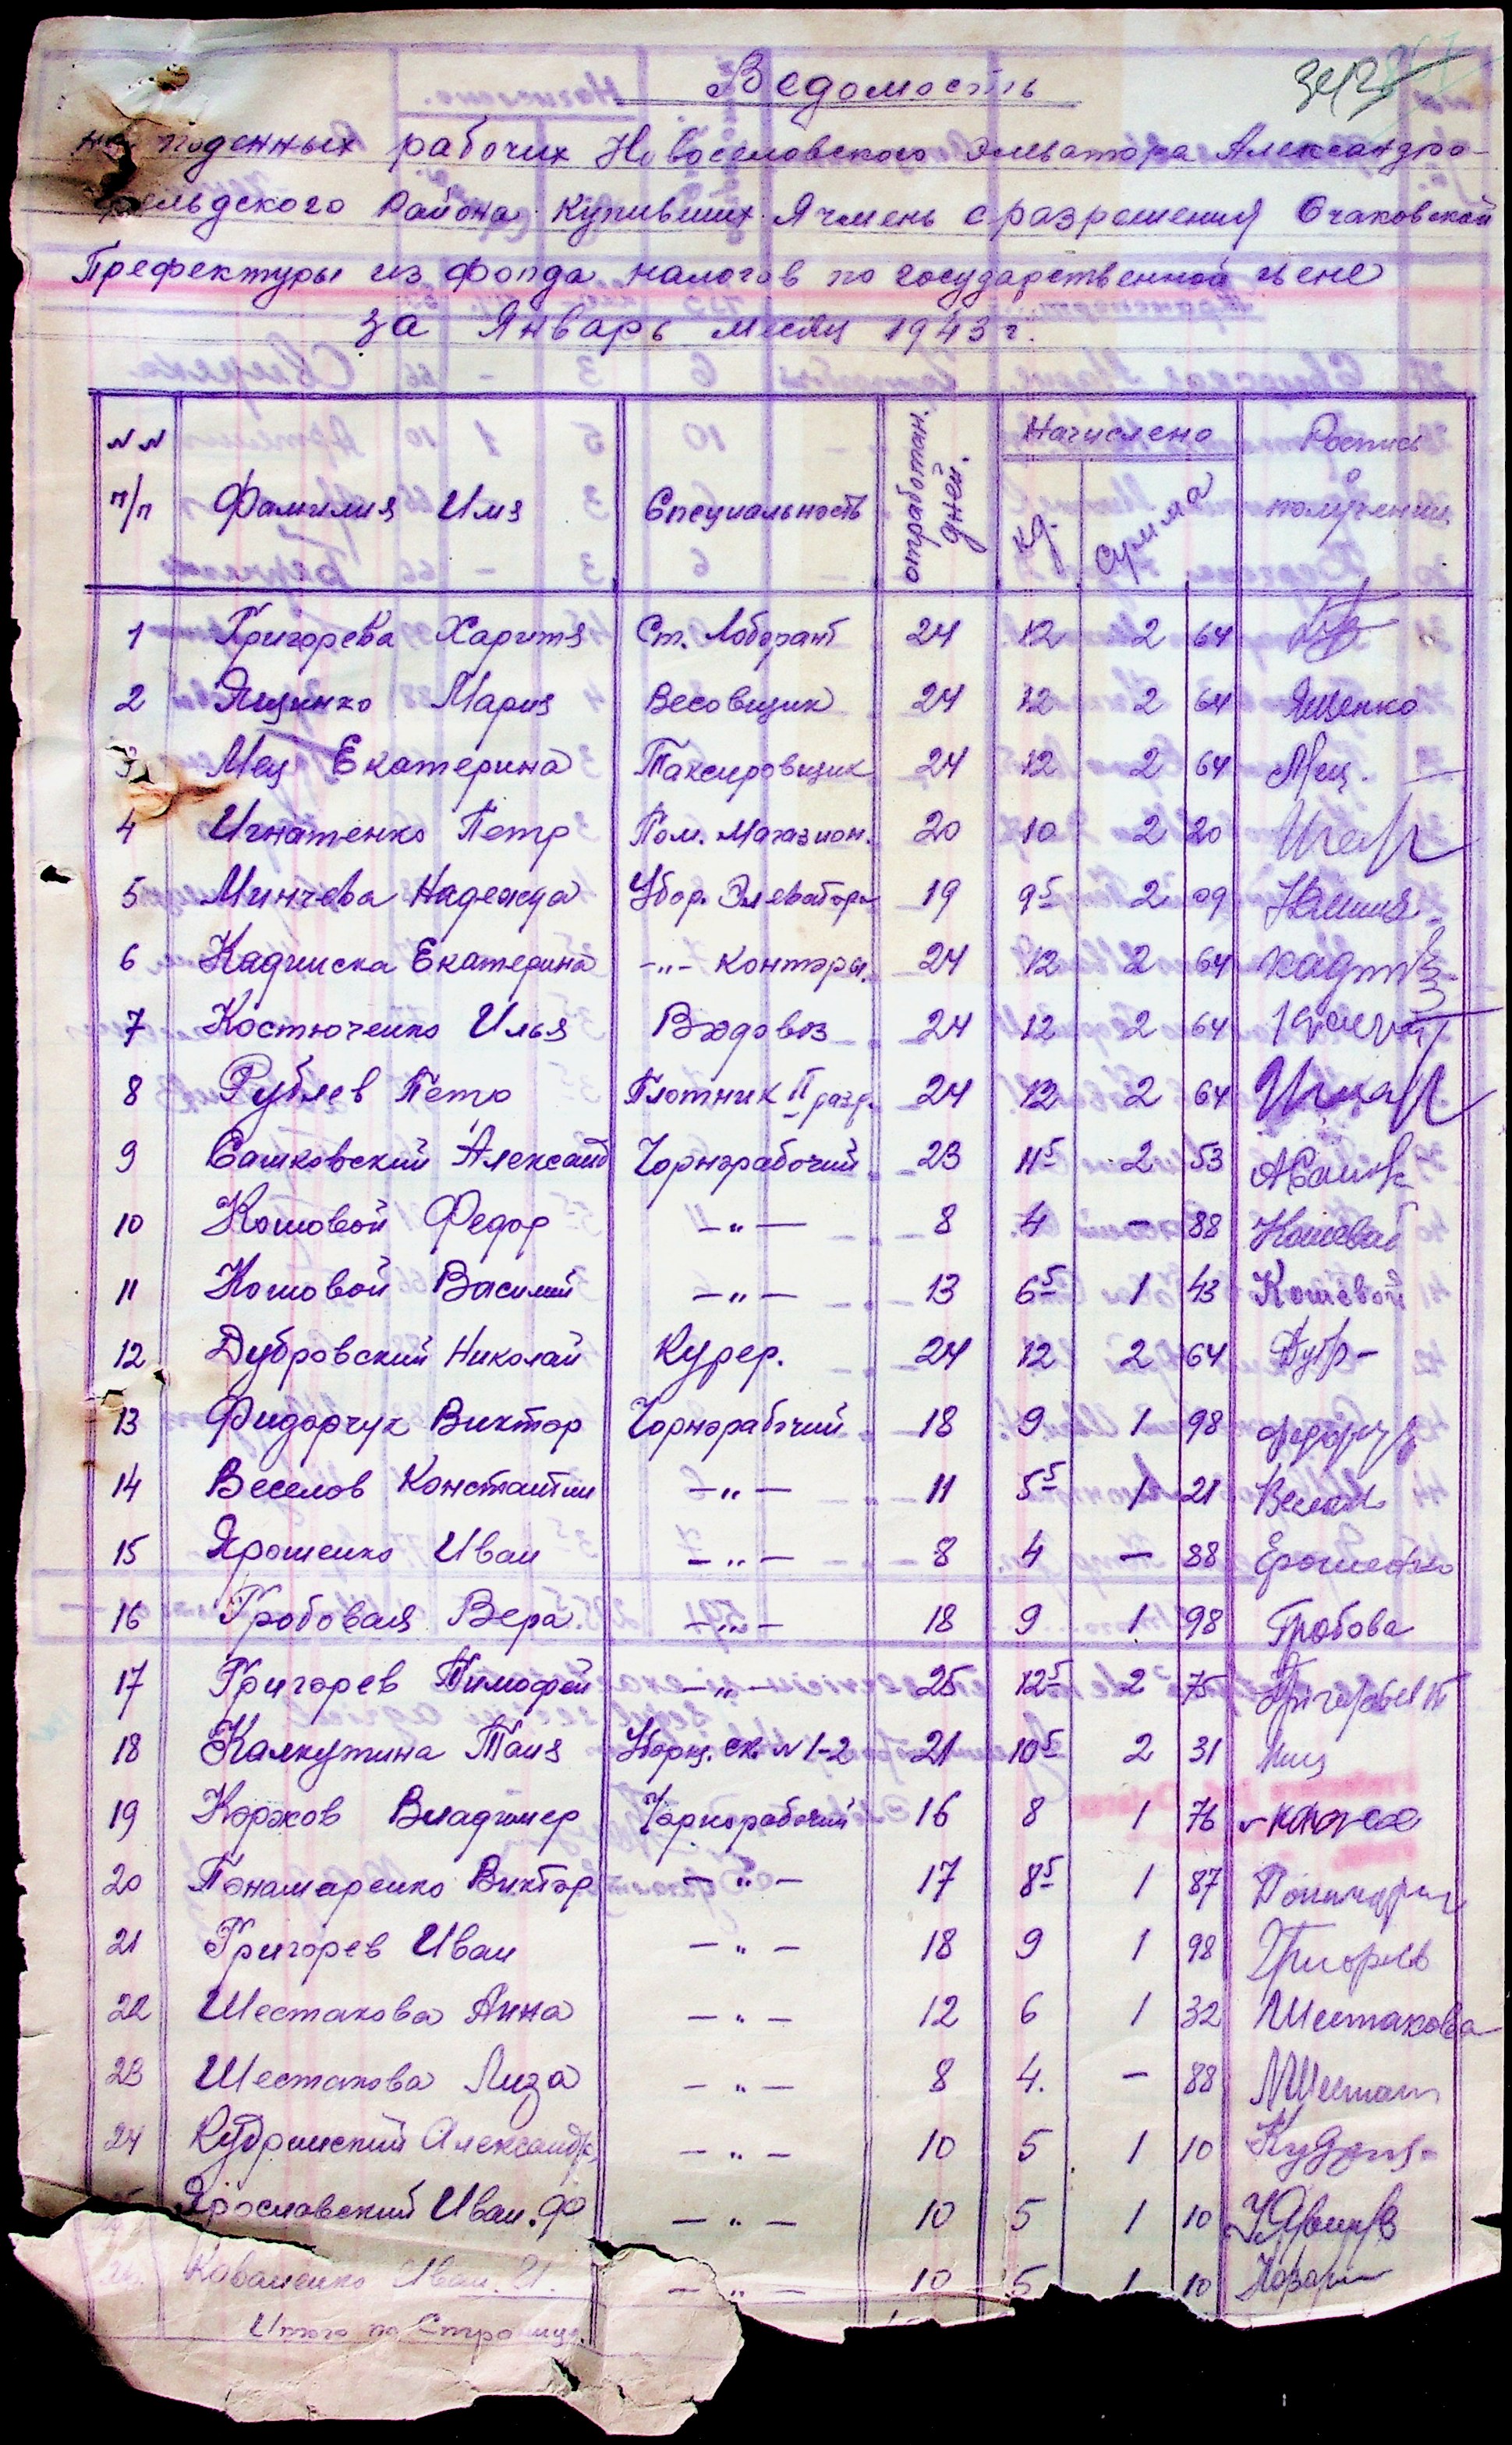 Ведомость
на поденных рабочих Новоселовского Элеватора Александро-
фельдского Района купивших Ячмень с разрешения Очаковской
Префектуры из фонда налогов по государственной цене
за Январь месяц 1943 г.
№№ п/п Фамилия Имя Специальность отработан. дней. Начислено кг. Сумма Роспись получении
1 Григорева Харитя Ст. Лоборант 24 12 2 64
2 Ященко Мария Весовщик 24 12 2 64 Ященко
3 Мец Екатерина Таксировщик 24 12 2 64 Мец.
4 Игнатенко Петр Пом. Магазион. 20 10 2 20
5 Минчева Надежда Убор. Элеватора 19 9⁵ 2 09
6 Кадииска Екатерина -"- конторы. 24 12 2 64
7 Костюченко Илья Водовоз 24 12 2 64
8 Рублев Петр Плотник II разр. 24 12 2 64
9 Сашковский Александ Чорнорабочий 23 11⁵ 2 53 АСашк
10 Кошовой Федор -"- 8 4 - 88 Кошевой
11 Кошовой Василий -"- 13 6⁵ 1 43 Кошевой
12 Дубровский Николай Курер. 24 12 2 64 Дубр-
13 Фидорчук Виктор Чорнорабочий 18 9 1 98
14 Веселов Константин -"- 11 5⁵ 1 21
15 Ярошенко Иван -"- 8 4 - 88 Ерошенко
16 Гробовая Вера. -"- 18 9 1 98 Гробова
17 Григорев Тимофей -"- 25 12⁵ 2 75
18 Калкутина Таия Уборщ. ск. №1-2 21 10⁵ 2 31
19 Коржов Владимер Чорнорабочий 16 8 1 76
20 Понамаренко Виктор -"- 17 8⁵ 1 87
21 Григорев Иван -"- 18 9 1 98 Григорев
22 Шестакова Анна -"- 12 6 1 32 Шестакова
23 Шестакова Лиза -"- 8 4. - 88
24 Кудринский Александр -"- 10 5 1 10
Ярославский Иван. Ф -"- 10 5 1 10
26. Коваленко Иван. И. -"- 10 5 1 10
Итого по Странице.